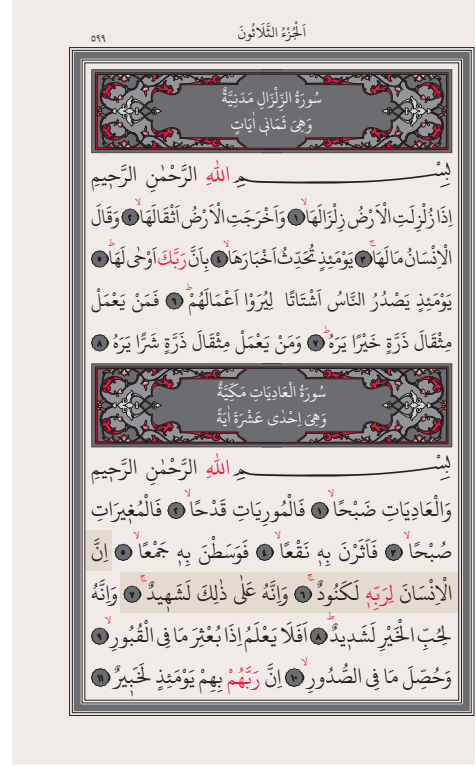 اَلْجُزْءُ الثَّلَاثُونَ
٥٩٩
سُورَةُ الزِّلْزَالِ مَدَنِيَّةٌ
وَهِىَ ثَمَانِى اٰيَاتٍ
بِسْمِ اللهِ الرَّحْمٰنِ الرَّحٖيمِ
اِذَا زُلْزِلَتِ الْاَرْضُ زِلْزَالَهَاۙ ﴿١﴾ وَاَخْرَجَتِ الْاَرْضُ اَثْقَالَهَاۙ ﴿٢﴾ وَقَالَ
الْاِنْسَانُ مَالَهَاۚ ﴿٣﴾ يَوْمَئِذٍ تُحَدِّثُ اَخْبَارَهَاۙ ﴿٤﴾ بِاَنَّ رَبَّكَ اَوْحٰى لَهَاؕ ﴿٥﴾
يَوْمَئِذٍ يَصْدُرُ النَّاسُ اَشْتَاتًا لِيُرَوْا اَعْمَالَهُمْؕ ﴿٦﴾ فَمَنْ يَعْمَلْ
مِثْقَالَ ذَرَّةٍ خَيْرًا يَرَهُؕ ﴿٧﴾ وَمَنْ يَعْمَلْ مِثْقَالَ ذَرَّةٍ شَرًّا يَرَهُ ﴿٨﴾
سُورَةُ الْعَادِيَاتِ مَكِّيَّةٌ
وَهِىَ اِحْدٰى عَشْرَةَ اٰيَةً
بِسْمِ اللهِ الرَّحْمٰنِ الرَّحٖيمِ
وَالْعَادِيَاتِ ضَبْحًاۙ ﴿١﴾ فَالْمُورِيَاتِ قَدْحًاۙ ﴿٢﴾ فَالْمُغٖيرَاتِ
صُبْحًاۙ ﴿٣﴾ فَاَثَرْنَ بِهٖ نَقْعًاۙ ﴿٤﴾ فَوَسَطْنَ بِهٖ جَمْعًاۙ ﴿٥﴾ اِنَّ
الْاِنْسَانَ لِرَبِّهٖ لَكَنُودٌۚ ﴿٦﴾ وَاِنَّهُ عَلٰى ذٰلِكَ لَشَهٖيدٌۚ ﴿٧﴾ وَاِنَّهُ
لِحُبِّ الْخَيْرِ لَشَدٖيدٌؕ ﴿٨﴾ اَفَلَا يَعْلَمُ اِذَا بُعْثِرَ مَا فِى الْقُبُورِۙ ﴿٩﴾
وَحُصِّلَ مَا فِى الصُّدُورِۙ ﴿١٠﴾ اِنَّ رَبَّهُمْ بِهِمْ يَوْمَئِذٍ لَخَبٖيرٌ ﴿١١﴾